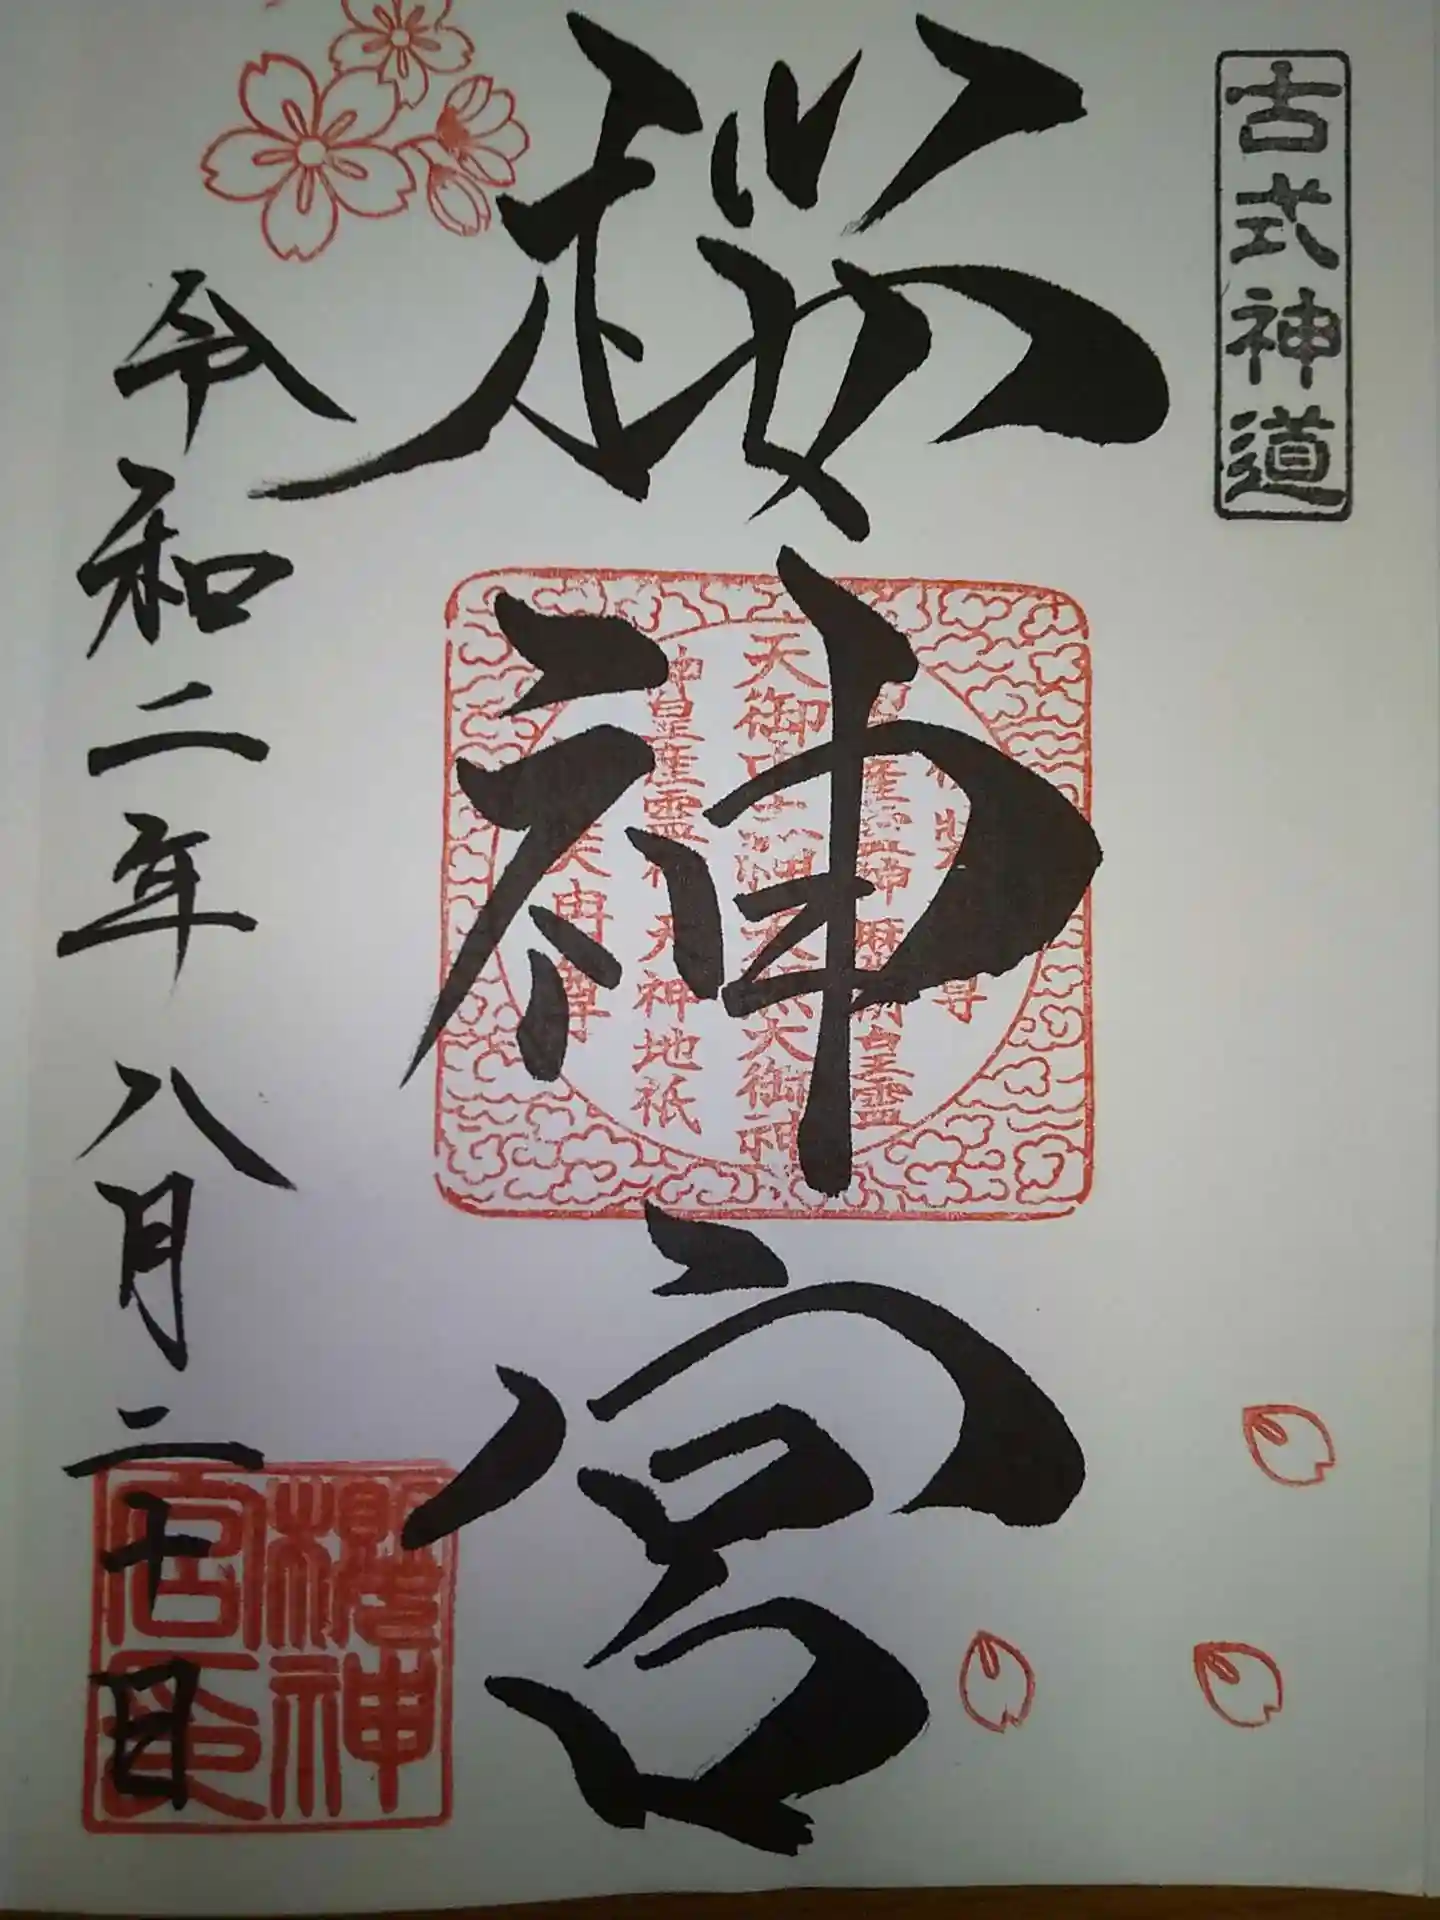 古式神道
桜神宮
天御中主神天照大御神
神皇産霊神天神地祇
令和二年八月二十日
櫻神宮印